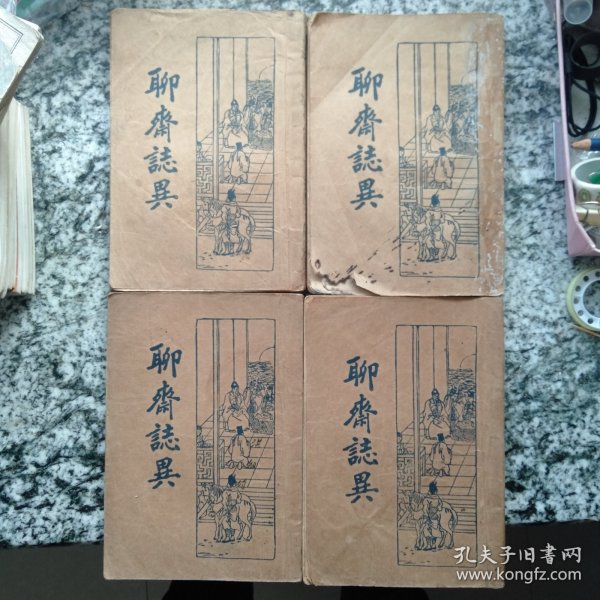 聊齋誌異
聊齋誌異
聊齋誌異
聊齋誌異
孔夫子旧書网
www.kongfz.com